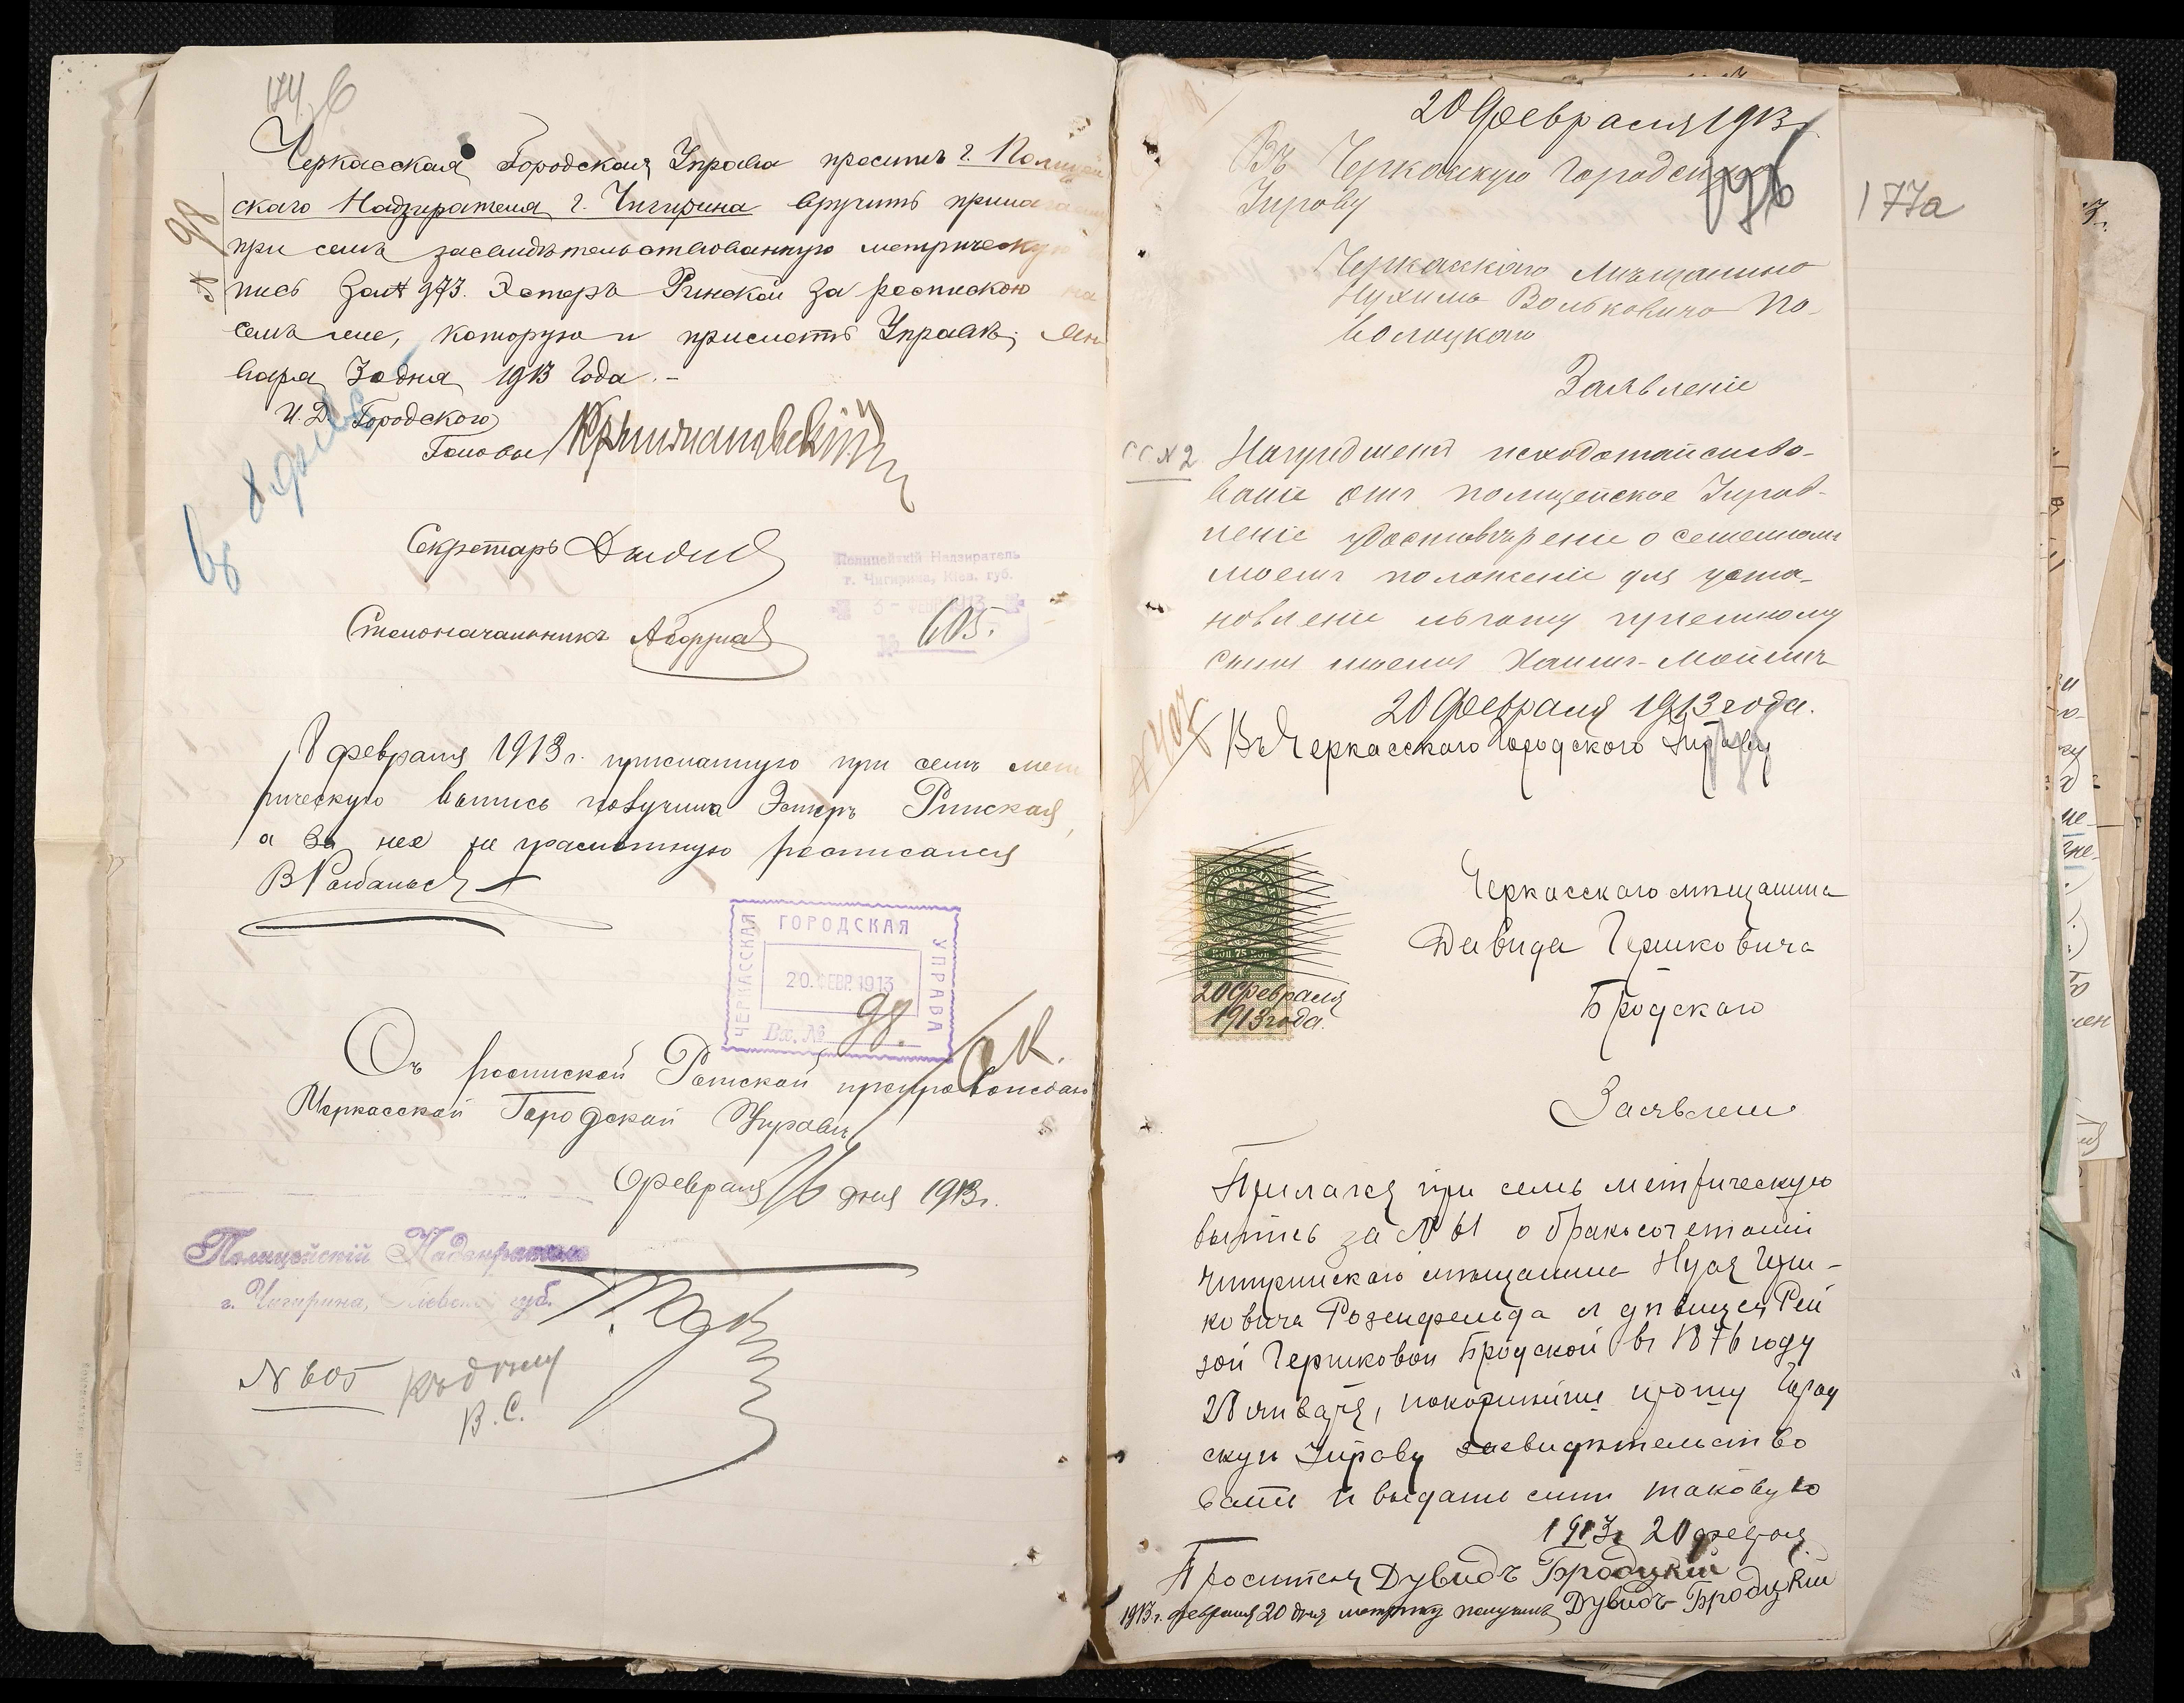 Черкасская Городская Управа проситъ г. Полицей
скаго Надзирателя г. Чигирина вручить прилагаемую
при семъ засвидѣтельствованную метрическую
№ 98
пись за № 973. Эстеръ Ринской за роспискою на
семъ же, которую и прислать Управѣ; Ян
варя 30 дня 1913 года.-
И. Д. Городского
Головы
Секретарь
Столоначальникъ
въ
Полицейскій Надзиратель
г. Чигирина, Кіев. губ.
ФЕВР 1913
№ 605.
8 февраля 1913 г. присланную при семъ мет
рическую выпись получила Эстеръ Ринская,
а за нее не грамотную росписался
ЧЕРКАССКАЯ ГОРОДСКАЯ УПРАВА
20. ФЕВР. 1913
Вх. № 98.
Съ роспиской Ринской препровождаю
Черкасской Городской Управѣ
Февраля 16 дня 1913 г.
Полицейскій Надзиратель
г. Чигирина, Кіевской губ.
N 605
В. С.
20 Февраля 1913
Въ Черкасскую Городскую
Управу
177а
Черкасскаго мѣщанина
Нухима Вольковича По-
волоцкаго
Заявленіе
Нагридменя исходотайство-
вание отъ полицейское Управ-
ленiе удостовѣрение о семейномъ
моемъ положеніе для уста-
новление льготы приемному
сыну моему Хаимъ-Мойше
20 Февраля 1913 года.
№ 407
Въ Черкасскаго Городского Управу
КОП. 75 КОП.
20 Февраля
1913 года.
Черкасскаго мѣщанина
Давида Гершковича
Бродскаго
Заявление
Прилагая при семъ метрическую
выпись за № 61 о бракосочетаніи
Чигиринскаго мѣщанина Нуая Герш-
ковича Розенфельда и дѣвицей Рей
зой Гершковой Бродской въ 1876 году
28 января, покорнейше прошу Город
скую Управу засвидѣтельство
вать и выдать мнѣ таковую
1913 г 20 февраля
Проситель Дувидъ Бродцкій
1913 г. февраля 20 дня метрику получилъ Дувидъ Бродцкій